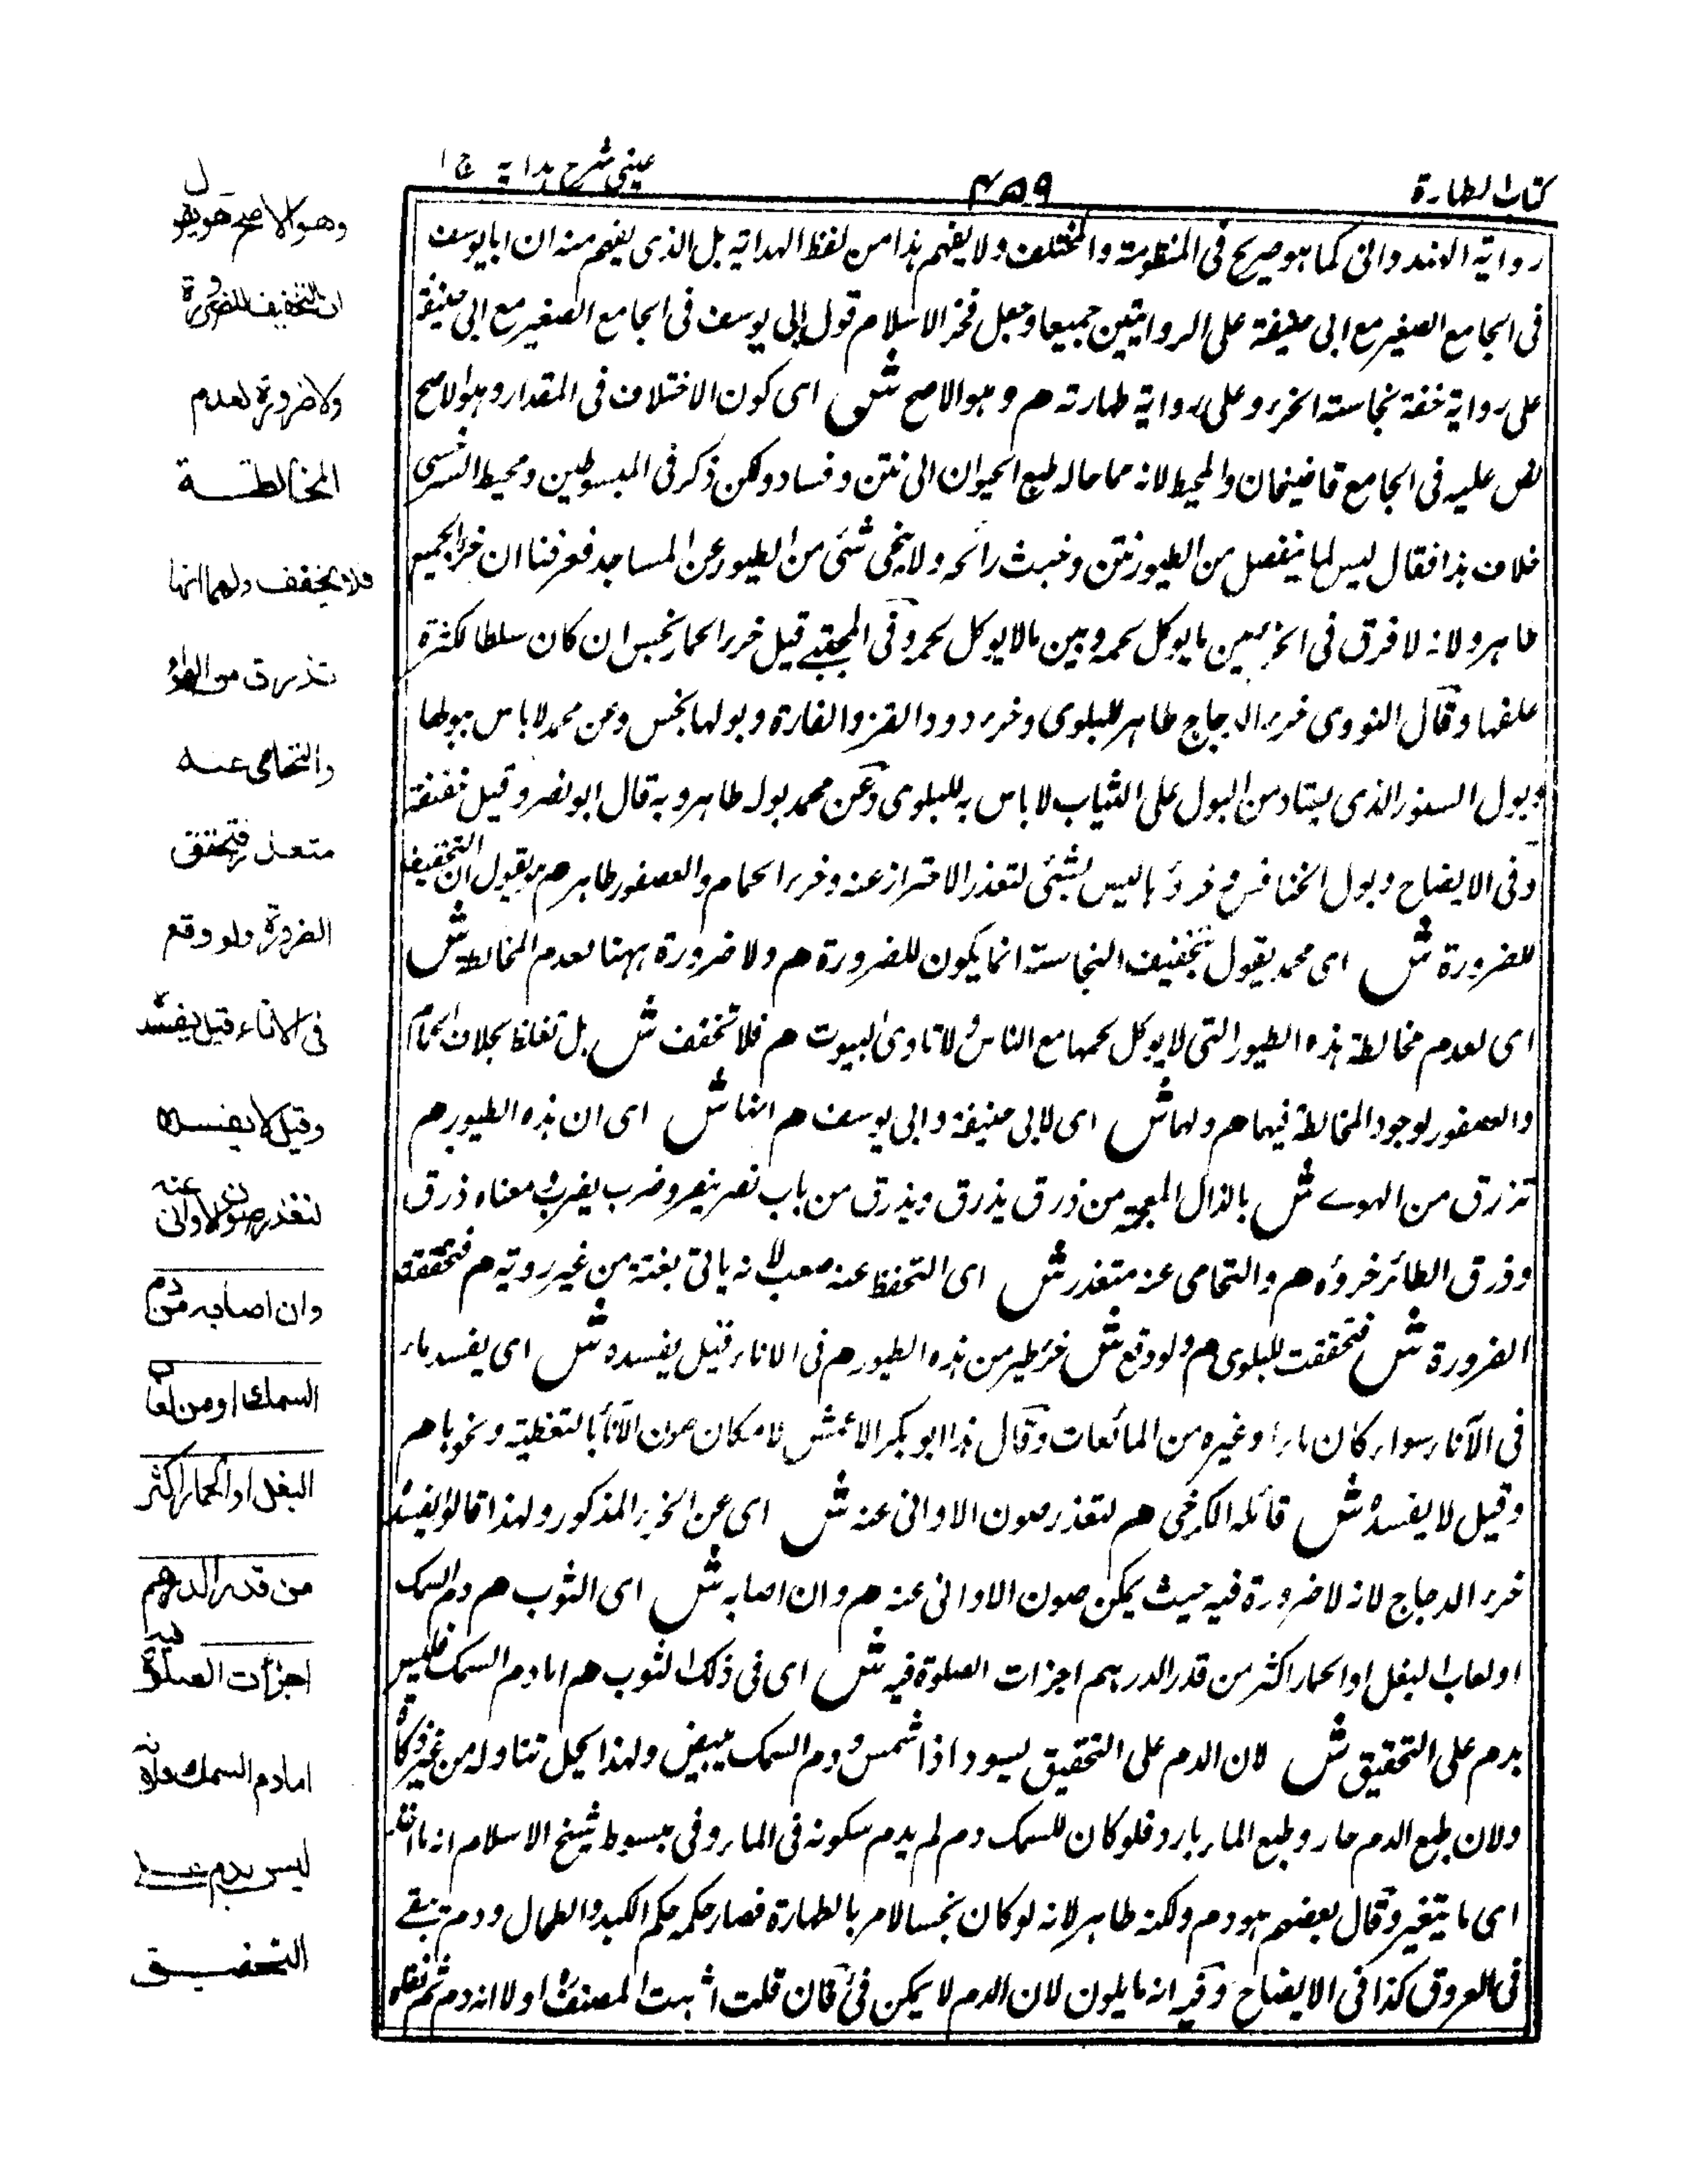 كتاب الطهارة
۴۵۹
عینی شرح ہدایہ ج ۱
رواية الهندوانى كما هو صريح فى المنظومة والمختلف ولا يفهم هذا من لفظ الهداية بل الذى يفهم منه ان ابا يوسف
فى الجامع الصغير مع ابى حنيفة على الروايتين جميعا وجعل فخر الاسلام قول ابى يوسف فى الجامع الصغير مع ابى حنيفة
على رواية خفة نجاسة الخرء وعلى رواية طهارته هم وهو الاصح ش اى كون الاختلاف فى المقدار وهو الاصح
نص عليه فى الجامع قاضيخان والمحيط لانه مما حاله طبع الحيوان الى نتن وفساد ولكن ذكر فى المبسوطين ومحيط السرخسى
خلاف هذا فقال ليس لما ينفصل من الطيور نتن وخبث رائحه ولا ينحى شئ من الطيور عن المساجد فعرفنا ان خرء الجميع
طاهر ولانه لا فرق فى الخرء بين ما يوكل لحمه وبين مالا يوكل لحمه وفى المجتبے قيل خرء الحمار نجس ان كان سلطا لكثرة
علفها وقال النووى خرء الدجاج طاهر للبلوى وخرء دود القز والفارة وبولها نجس وعن محمد لا باس ببولها
وبول السنور الذى يعتاد من البول على الثياب لا باس به للبلوى وعن محمد بوله طاهر وبه قال ابو نصر وقيل خفيفة
وفى الايضاح وبول الخنافس وخرؤها ليس بشئى لتعذر الاحتراز عنه وخرء الحمام والعصفور طاهر هم هو يقول ان التخفيف
للضرورة ش اى محمد يقول تخفيف النجاسة انما يكون للضرورة هم ولا ضرورة ههنا لعدم المخالطة ش
اى لعدم مخالطة هذه الطيور التى لا يوكل لحمها مع الناس ولا تاوى البيوت هم فلا تخفف ش بل تغلظ بخلاف الحمام
والعصفور لوجود المخالطة فيهما هم ولهما ش اى لابى حنيفة وابى يوسف هم انها ش اى ان هذه الطيور هم
تذرق من الهوے ش بالذال المعجمة من ذرق يذرق ويذرق من باب نصر ينصر وضرب يضرب ومعناه ذرق
وذرق الطائر خروءه هم والتحامى عنه متعذر ش اى التحفظ عنه صعب لانه ياتى بغتة من غير روية هم فتحققت
الضرورة ش فتحققت للبلوى هم ولو وقع ش خرء طير من هذه الطيور هم فى الاناء قيل يفسده ش اى يفسد ماء
فى الآناء سواء كان ماء او غيره من المائعات وقال هذا ابو بكر الاعمش لامكان صون الآناء بالتغطية ونحوها هم
وقيل لا يفسده ش قائله الكرخى هم لتعذر صون الاوانى عنه ش اى عن الخرء المذكور ولهذا قالوا يفسده
خرء الدجاج لانه لا ضرورة فيه حيث يمكن صون الاوانى عنه هم وان اصابه ش اى الثوب هم دم السمك
او لعاب البغل او الحمار اكثر من قدر الدرهم اجزات الصلوة فيه ش اى فى ذلك الثوب هم اما دم السمك فليس
بدم على التحقيق ش لان الدم على التحقيق يسود اذا شمس ودم السمك يبيض ولهذا يحل تناوله من غير ذكاة
ولان طبع الدم حار وطبع الماء بارد فلو كان للسمك دم لم يدم سكونه فى الماء وفى مبسوط شيخ الاسلام انه ماء
اى ما يتغير وقال بعضهم هو دم ولكنه طاهر لانه لو كان نجسا لامر بالطهارة فصار حكمه حكم الكبد والطحال ودم يبقے
فى العروق كذا فى الايضاح وفيه انه ما يلون لان الدم لا يمكن فى فان قلت اثبت المصنف اولا انه دم ثم نقله
وهو الاصح هو يقول
ان التخفيف للضرورة
ولا ضرورة لعدم
المخالطة
فلا يخفف ولهما انها
تذرق من الهواء
والتحامى عنه
متعذر فتحقق
الضرورة ولو وقع
فى الاناء قيل يفسده
وقيل لا يفسده
لتعذر صون الاوانى عنه
وان اصابه من دم
السمك او من لعاب
البغل او الحمار اكثر
من قدر الدرهم
اجزأت الصلوة فيه
اما دم السمك فلانه
ليس بدم على
التحقيق